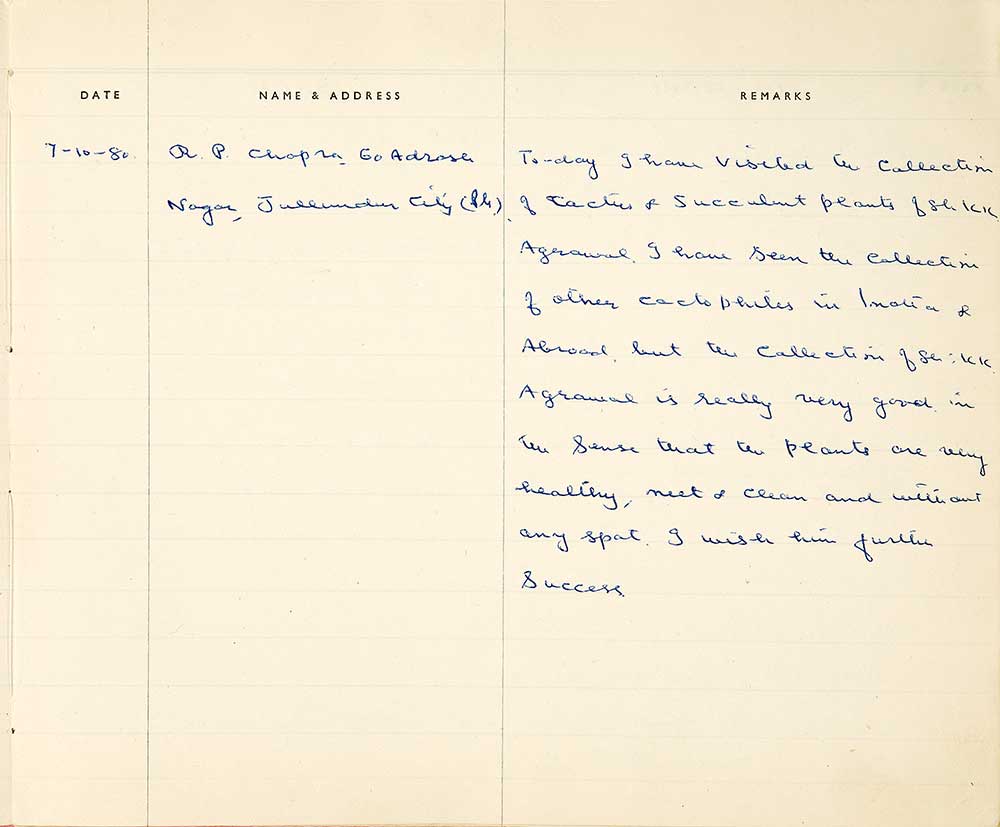 DATE NAME & ADDRESS REMARKS
7-10-80. R. P. Chopra, 60 Adrash
Nagar, Jullundur City (Pb.).
To-day I have visited the collection
of Cactus & Succulent plants of Sh. K.K.
Agrawal. I have seen the collection
of other cactophiles in India &
Abroad, but the collection of Sh: K.K.
Agrawal is really very good in
the sense that the plants are very
healthy, neet & clean and without
any spot. I wish him further
Success.